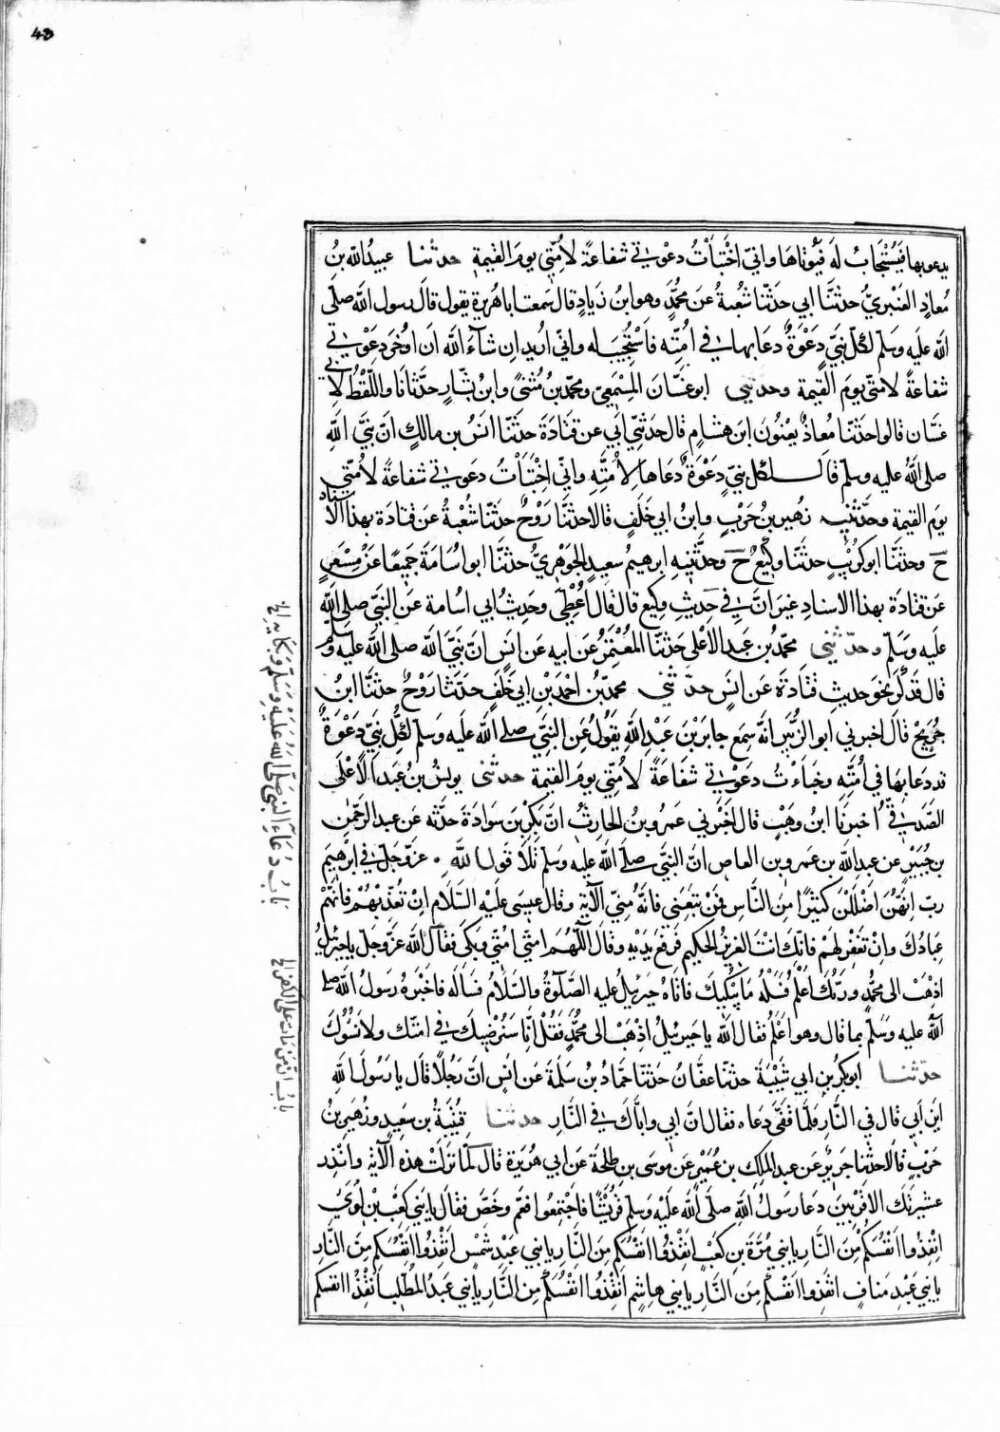 43
يدعو بها فيستجاب له فيؤتاها واني اختبأت دعوتي شفاعة لامتي يوم القيمة حدثنا عبيد الله بن
معاذ العنبري حدثنا ابي حدثنا شعبة عن محمد وهو ابن زياد قال سمعت اباهريرة يقول قال رسول الله صلى
الله عليه وسلم لكل نبي دعوة دعا بها في امته فاستجيب له واني اريد ان شاء الله ان اؤخر دعوتي
شفاعة لامتي يوم القيمة وحدثني ابو غسان المسمعي ومحمد بن مثنى وابن بشار حدثانا واللفظ لابي
غسان قالوا حدثنا معاذ يعنون ابن هشام قال حدثني ابي عن قتادة حدثنا انس بن مالك ان نبي الله
صلى الله عليه وسلم قال لكل نبي دعوة دعاها لامته واني اختبأت دعوتي شفاعة لامتي
يوم القيمة وحدثنيه زهير بن حرب وابن ابي خلف قالا حدثنا روح حدثنا شعبة عن قتادة بهذا الاسناد
ح وحدثنا ابو كريب حدثنا وكيع ح وحدثنيه ابرهيم سعيد الجوهري حدثنا ابو اسامة جميعا عن مسعر
عن قتادة بهذا الاسناد غير ان في حديث وكيع قال قال اعطى وحديث ابي اسامة عن النبي صلى الله
عليه وسلم وحدثني محمد بن عبد الاعلى حدثنا المعتمر عن ابيه عن انس ان نبي الله صلى الله عليه وسلم
قال فذكر نحو حديث قتادة عن انس حدثني محمد بن احمد بن ابي خلف حدثنا روح حدثنا ابن
جريج قال اخبرني ابو الزبير انه سمع جابر بن عبد الله يقول عن النبي صلى الله عليه وسلم لكل نبي دعوة
قد دعا بها في امته وخبأت دعوتي شفاعة لامتي يوم القيمة حدثني يونس بن عبد الاعلى
الصدفي اخبرنا ابن وهب قال اخبرني عمرو بن الحارث ان بكر بن سوادة حدثه عن عبد الرحمن
بن جبير عن عبد الله بن عمرو بن العاص ان النبي صلى الله عليه وسلم تلا قول الله عز وجل في ابرهيم
رب انهن اضللن كثيرا من الناس فمن تبعني فانه مني الآية وقال عيسى عليه السلام ان تعذبهم فانهم
عبادك وان تغفر لهم فانك انت العزيز الحكيم فرفع يديه وقال اللهم امتي امتي وبكى فقال الله عز وجل يا جبرئيل
اذهب الى محمد وربك اعلم فسله ما يبكيك فاتاه جبرئيل عليه الصلوة والسلام فساله فاخبره رسول الله صلى
الله عليه وسلم بما قال وهو اعلم فقال الله يا جبرئيل اذهب الى محمد فقل انا سنرضيك في امتك ولا نسوءك
حدثنا ابوبكر بن ابي شيبة حدثنا عفان حدثنا حماد بن سلمة عن انس ان رجلا قال يا رسول الله
اين ابي قال في النار فلما قفى دعاه فقال ان ابي واباك في النار حدثنا قتيبة بن سعيد وزهير بن
حرب قالا حدثنا جرير عن عبد الملك بن عمير عن موسى بن طلحة عن ابي هريرة قال لما نزلت هذه الآية وانذر
عشيرتك الاقربين دعا رسول الله صلى الله عليه وسلم قريشا فاجتمعوا فعم وخص فقال يا بني كعب بن لوي
انقذوا انفسكم من النار يا بني مرة بن كعب انقذوا انفسكم من النار يا بني عبد شمس انقذوا انفسكم من النار
يا بني عبد مناف انقذوا انفسكم من النار يا بني هاشم انقذوا انفسكم من النار يا بني عبد المطلب انقذوا انفسكم
باب دعاء النبي صلى الله عليه وسلم وبكايه الخ
باب ان من مات على الكفر الخ